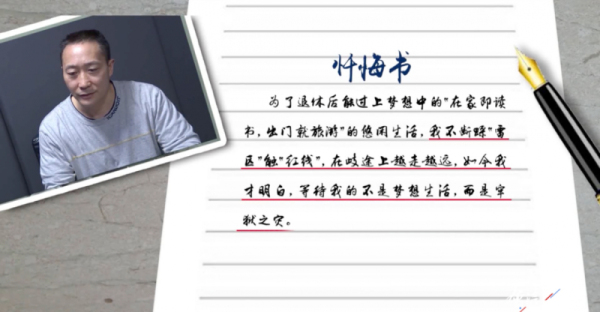 忏悔书
为了退休后能过上梦想中的"在家即读
书，出门就旅游"的悠闲生活，我不断踩"雷
区"触"红线"，在歧途上越走越远，如今我
才明白，等待我的不是梦想生活，而是牢
狱之灾。